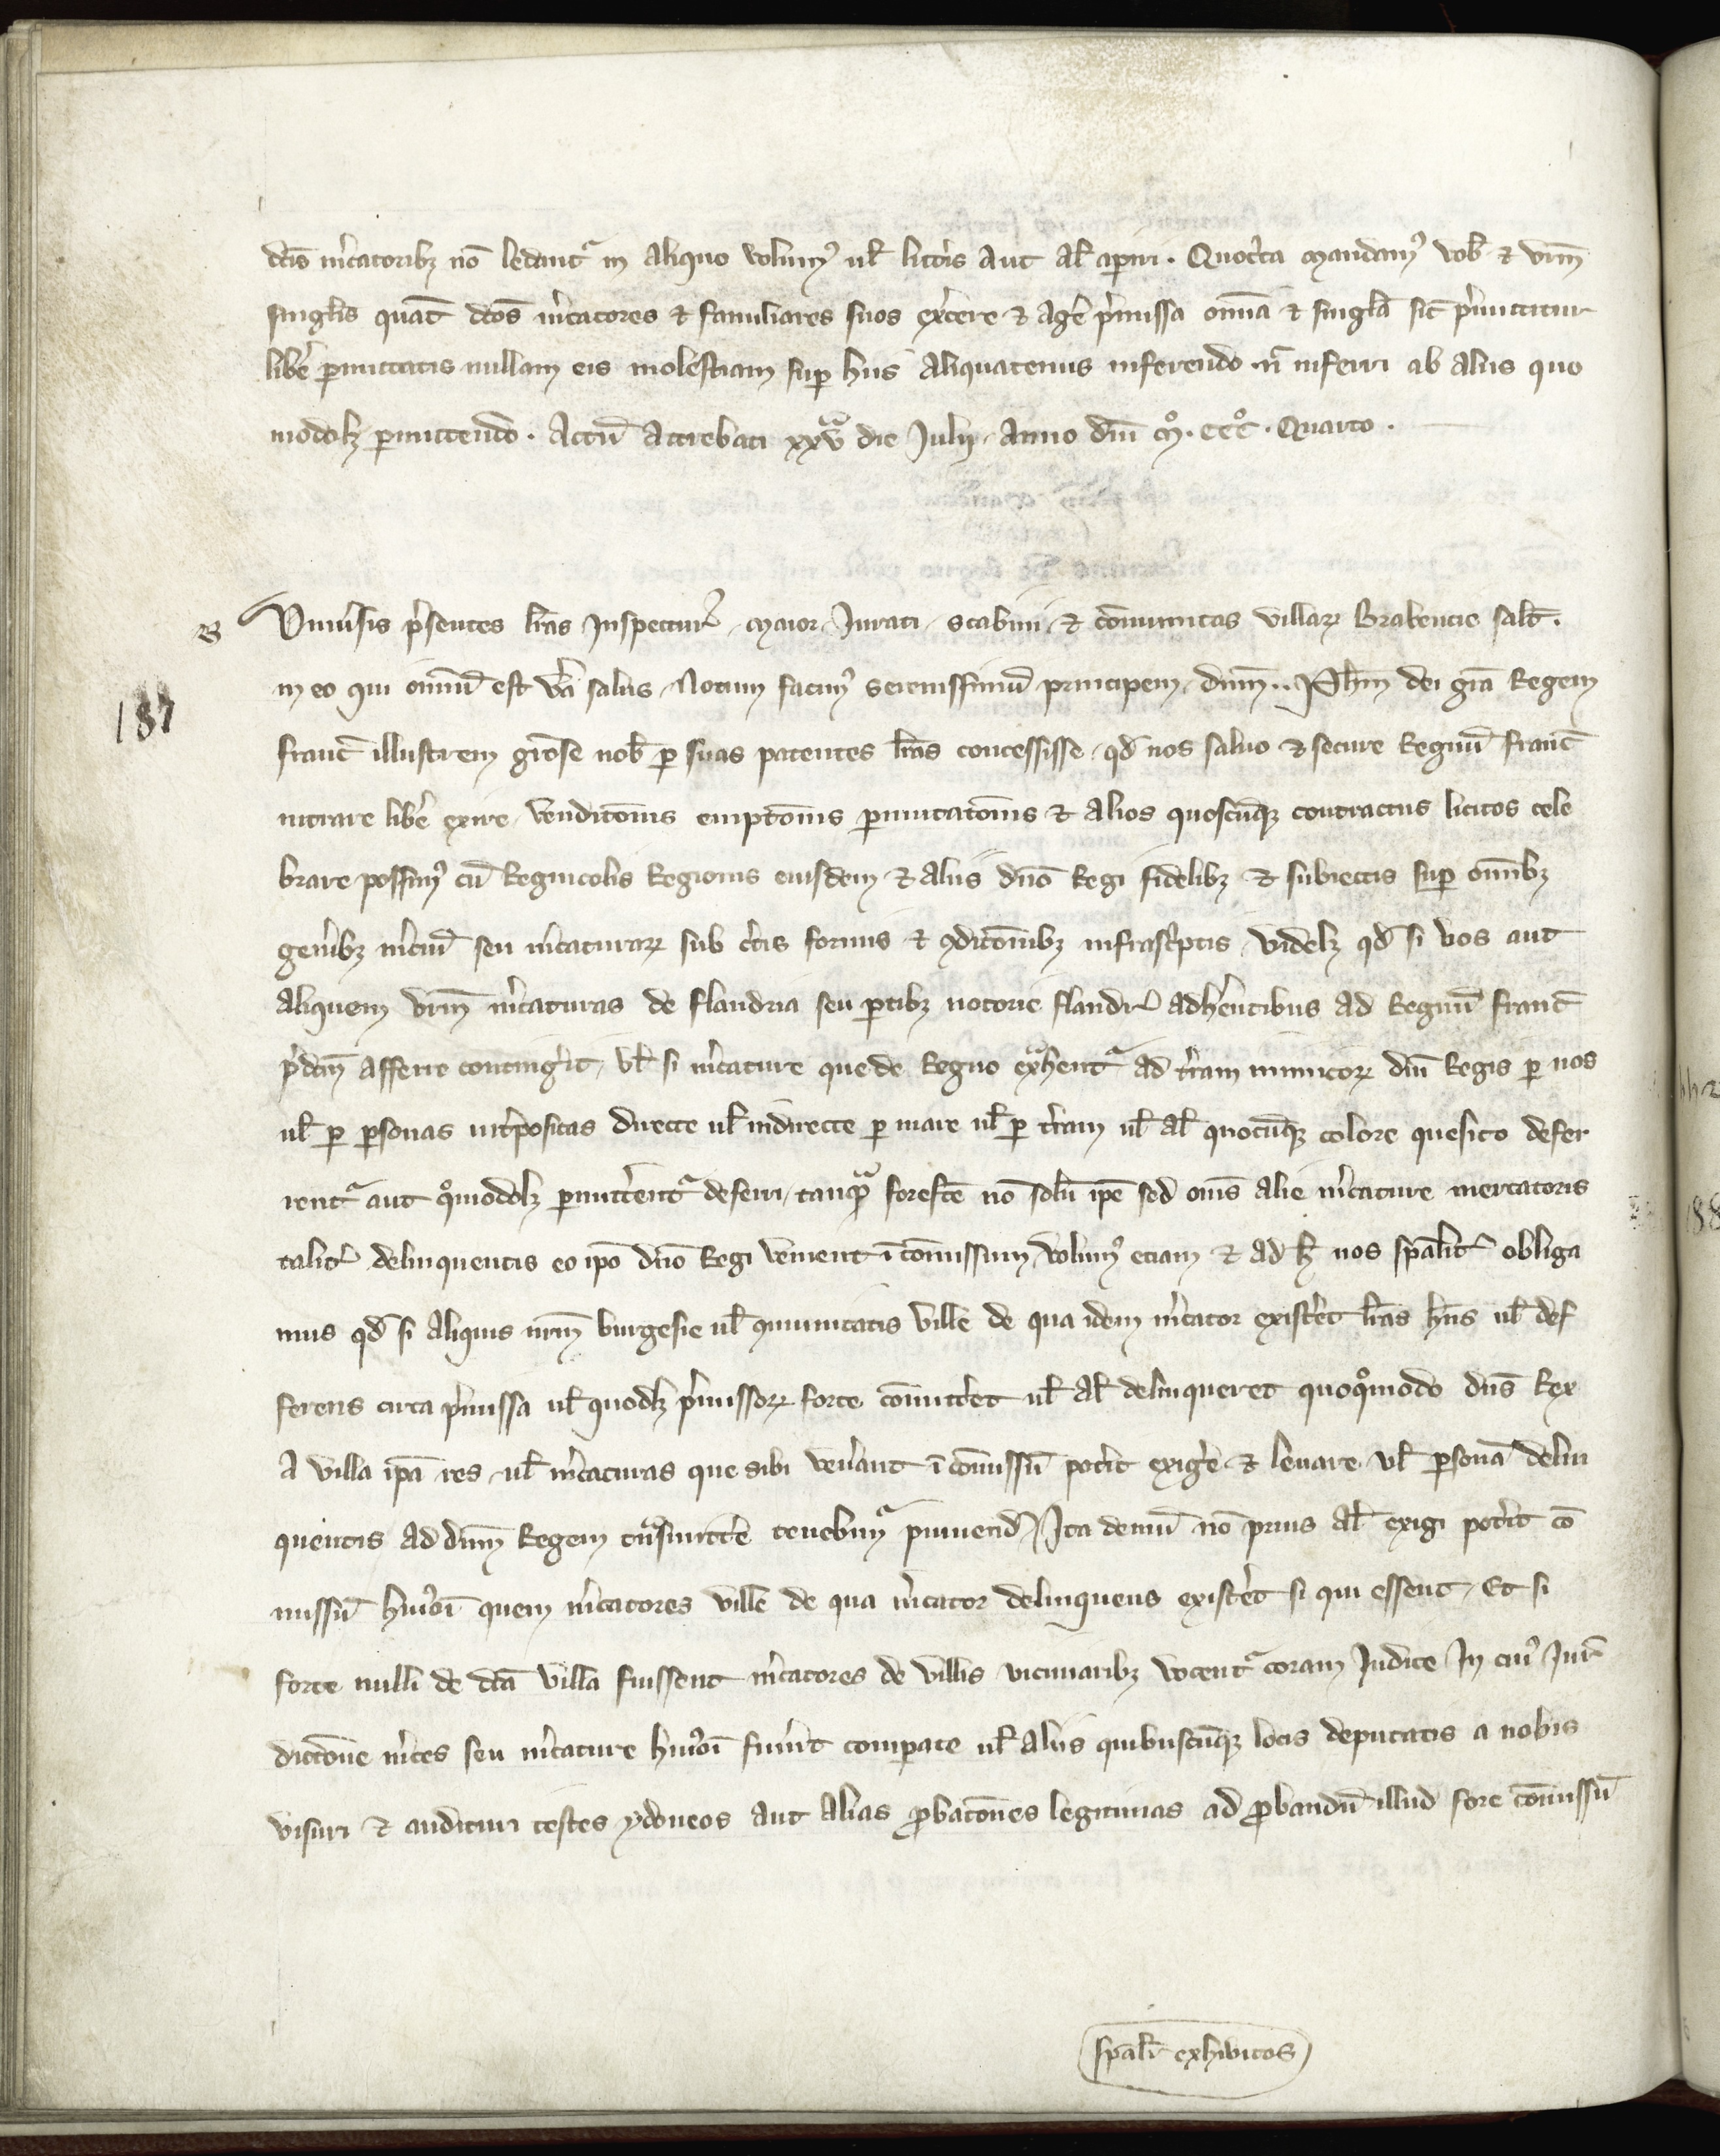 dc̄is m̃catoribꝫ nō ledant᷑ in aliquo volumꝰ ul̄ litt̃is aut al̄ ap̃iri . Quoc̃ca mandamꝰ vob̄ ⁊ vr̄m
singl̃is quat̄ dc̄os m̃catores ⁊ familiares suos ex̃cere ⁊ agẽ p̃missa om̄ia ⁊ singl̃a sic̄ p̃mittitur
libẽ ꝑmittatis nullam eis molestiam suꝑ hiis aliquatenus inferendo n̄ inferri ab aliis quo
modolꝫ ꝑmittendo . Actū Attrebati xxv̊ die Julij anno dn̄i mͦ . cccͦ . Quarto .
B
Uniũsis p̃sentes lr̄as Inspectur̃ . Maior . Jurati . Scabini . ⁊ cōmunitas villaꝝ Brabencie salt̄ .
in eo qui om̄iū est ṽa salus . Notum facimꝰ serenissimū principem . dn̄m .. Ph̄m dei grā Regem
187
Franc̄ illustrem grōse nob̄ ꝑ suas patentes lr̄as concessisse . qd̄ nos saluo ⁊ secure Regnū Franc̄
intrare libẽ exire venditōnis emptōnis ꝑmutatōnis ⁊ alios quoscūqꝫ contractus licitos cele
brare possimꝰ cū Regnicolis Regionis eiusdem ⁊ aliis dn̄o Regi fidelibꝫ ⁊ subiectis suꝑ om̄ibꝫ
geñibꝫ m̃ciū seu m̃caturaꝝ sub c̃tis formis ⁊ ꝯditōnibꝫ infrasc̃ptis . videlꝫ qd̄ si vos aut
aliquem vr̄m m̃caturas de Flandria seu ꝑtibꝫ notorie Flandr̃ adh̃entibus ad Regnū Franc̄
p̃dc̄m afferre conting̃it . Ul̄ si m̃cature que de Regno ex̃hent᷑ ad t̃ram inimicoꝝ dn̄i Regis ꝑ nos
ul̄ ꝑ ꝑsonas int̃positas directe ul̄ indirecte ꝑ mare ul̄ ꝑ t̃ram ul̄ al̄ quocūqꝫ colore quesito defer
rent᷑ aut qͦmodolꝫ ꝑmitt̃ent᷑ deferri . tanqᷓ forefc̄e nō solū ip̄e sed om̄s alie m̃cature mercatoris
talit̃ delinquentis eo ip̄o dn̄o Regi venient ī cōmissum . volumꝰ etiam ⁊ ad h̄ nos sp̄alit̃ obliga
mus qd̄ si aliquis nr̄m burgesie ul̄ ꝯmunitatis ville de qua idem m̃cator exist̃et lr̄as hn̄s ul̄ def
ferens circa p̃missa ul̄ quodlꝫ p̃missoꝝ forte cōmitt̃et ul̄ al̄ delinqueret quoqͦmodo dn̄s Rex
a villa ip̄a res . ul̄ m̃caturas que sibi veñant ī cōmissū pot̃it exig̃e ⁊ leuare . Ul̄ ꝑsonā delin
quentis ad dn̄m Regem t᷑nsmitt̃e tenebim᷑ puniend̄ Ita demū nō prius al̄ exigi pot̃it cō
missū huiꝰoī quem m̃catores ville de qua m̃cator delinquens exist̃et si qui essent . Et si
forte nulli de dc̄a villa fuissent m̃catores de villis vicinaribꝫ vocent᷑ coram Judice In cuiꝰ Jur̃
dictōne m̃ces seu m̃cature huiꝰoī fũint comꝑate ul̄ aliis quibuscūqꝫ locis deputatis a nobis
visuri ⁊ audituri testes ydoneos aut alias ꝓbatōnes legitimas ad ꝓbandū illud fore cōmissū
sp̄alit̃ exhibitos